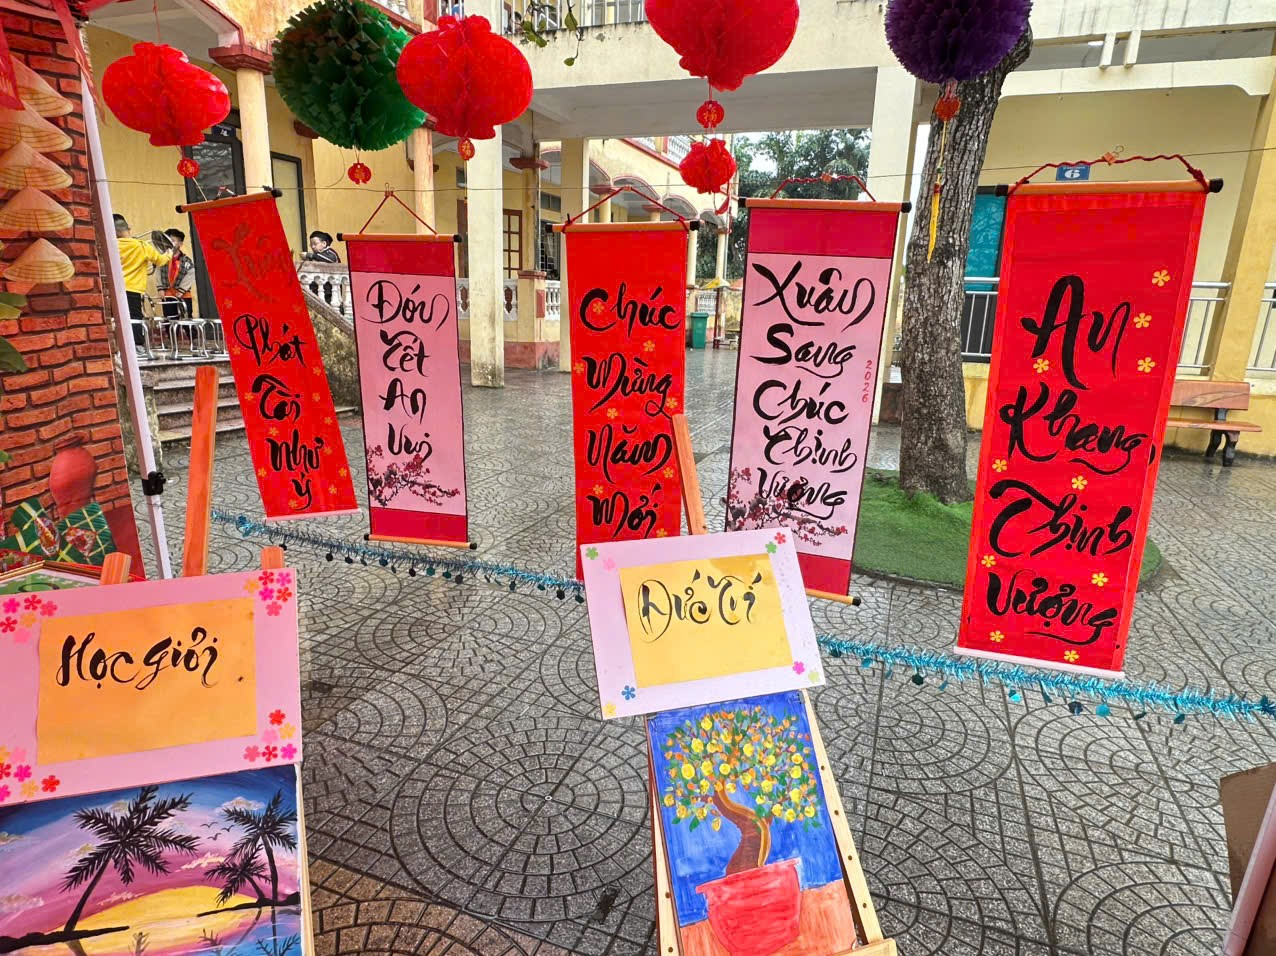 Xuân
Phát
Tài
Như
ý
Đón
Tết
An
Vui
Chúc
Mừng
Năm
Mới
Xuân
Sang
Chúc
Thịnh
Vượng
2026
An
Khang
Thịnh
Vượng
6
Học giỏi
Đức Trí